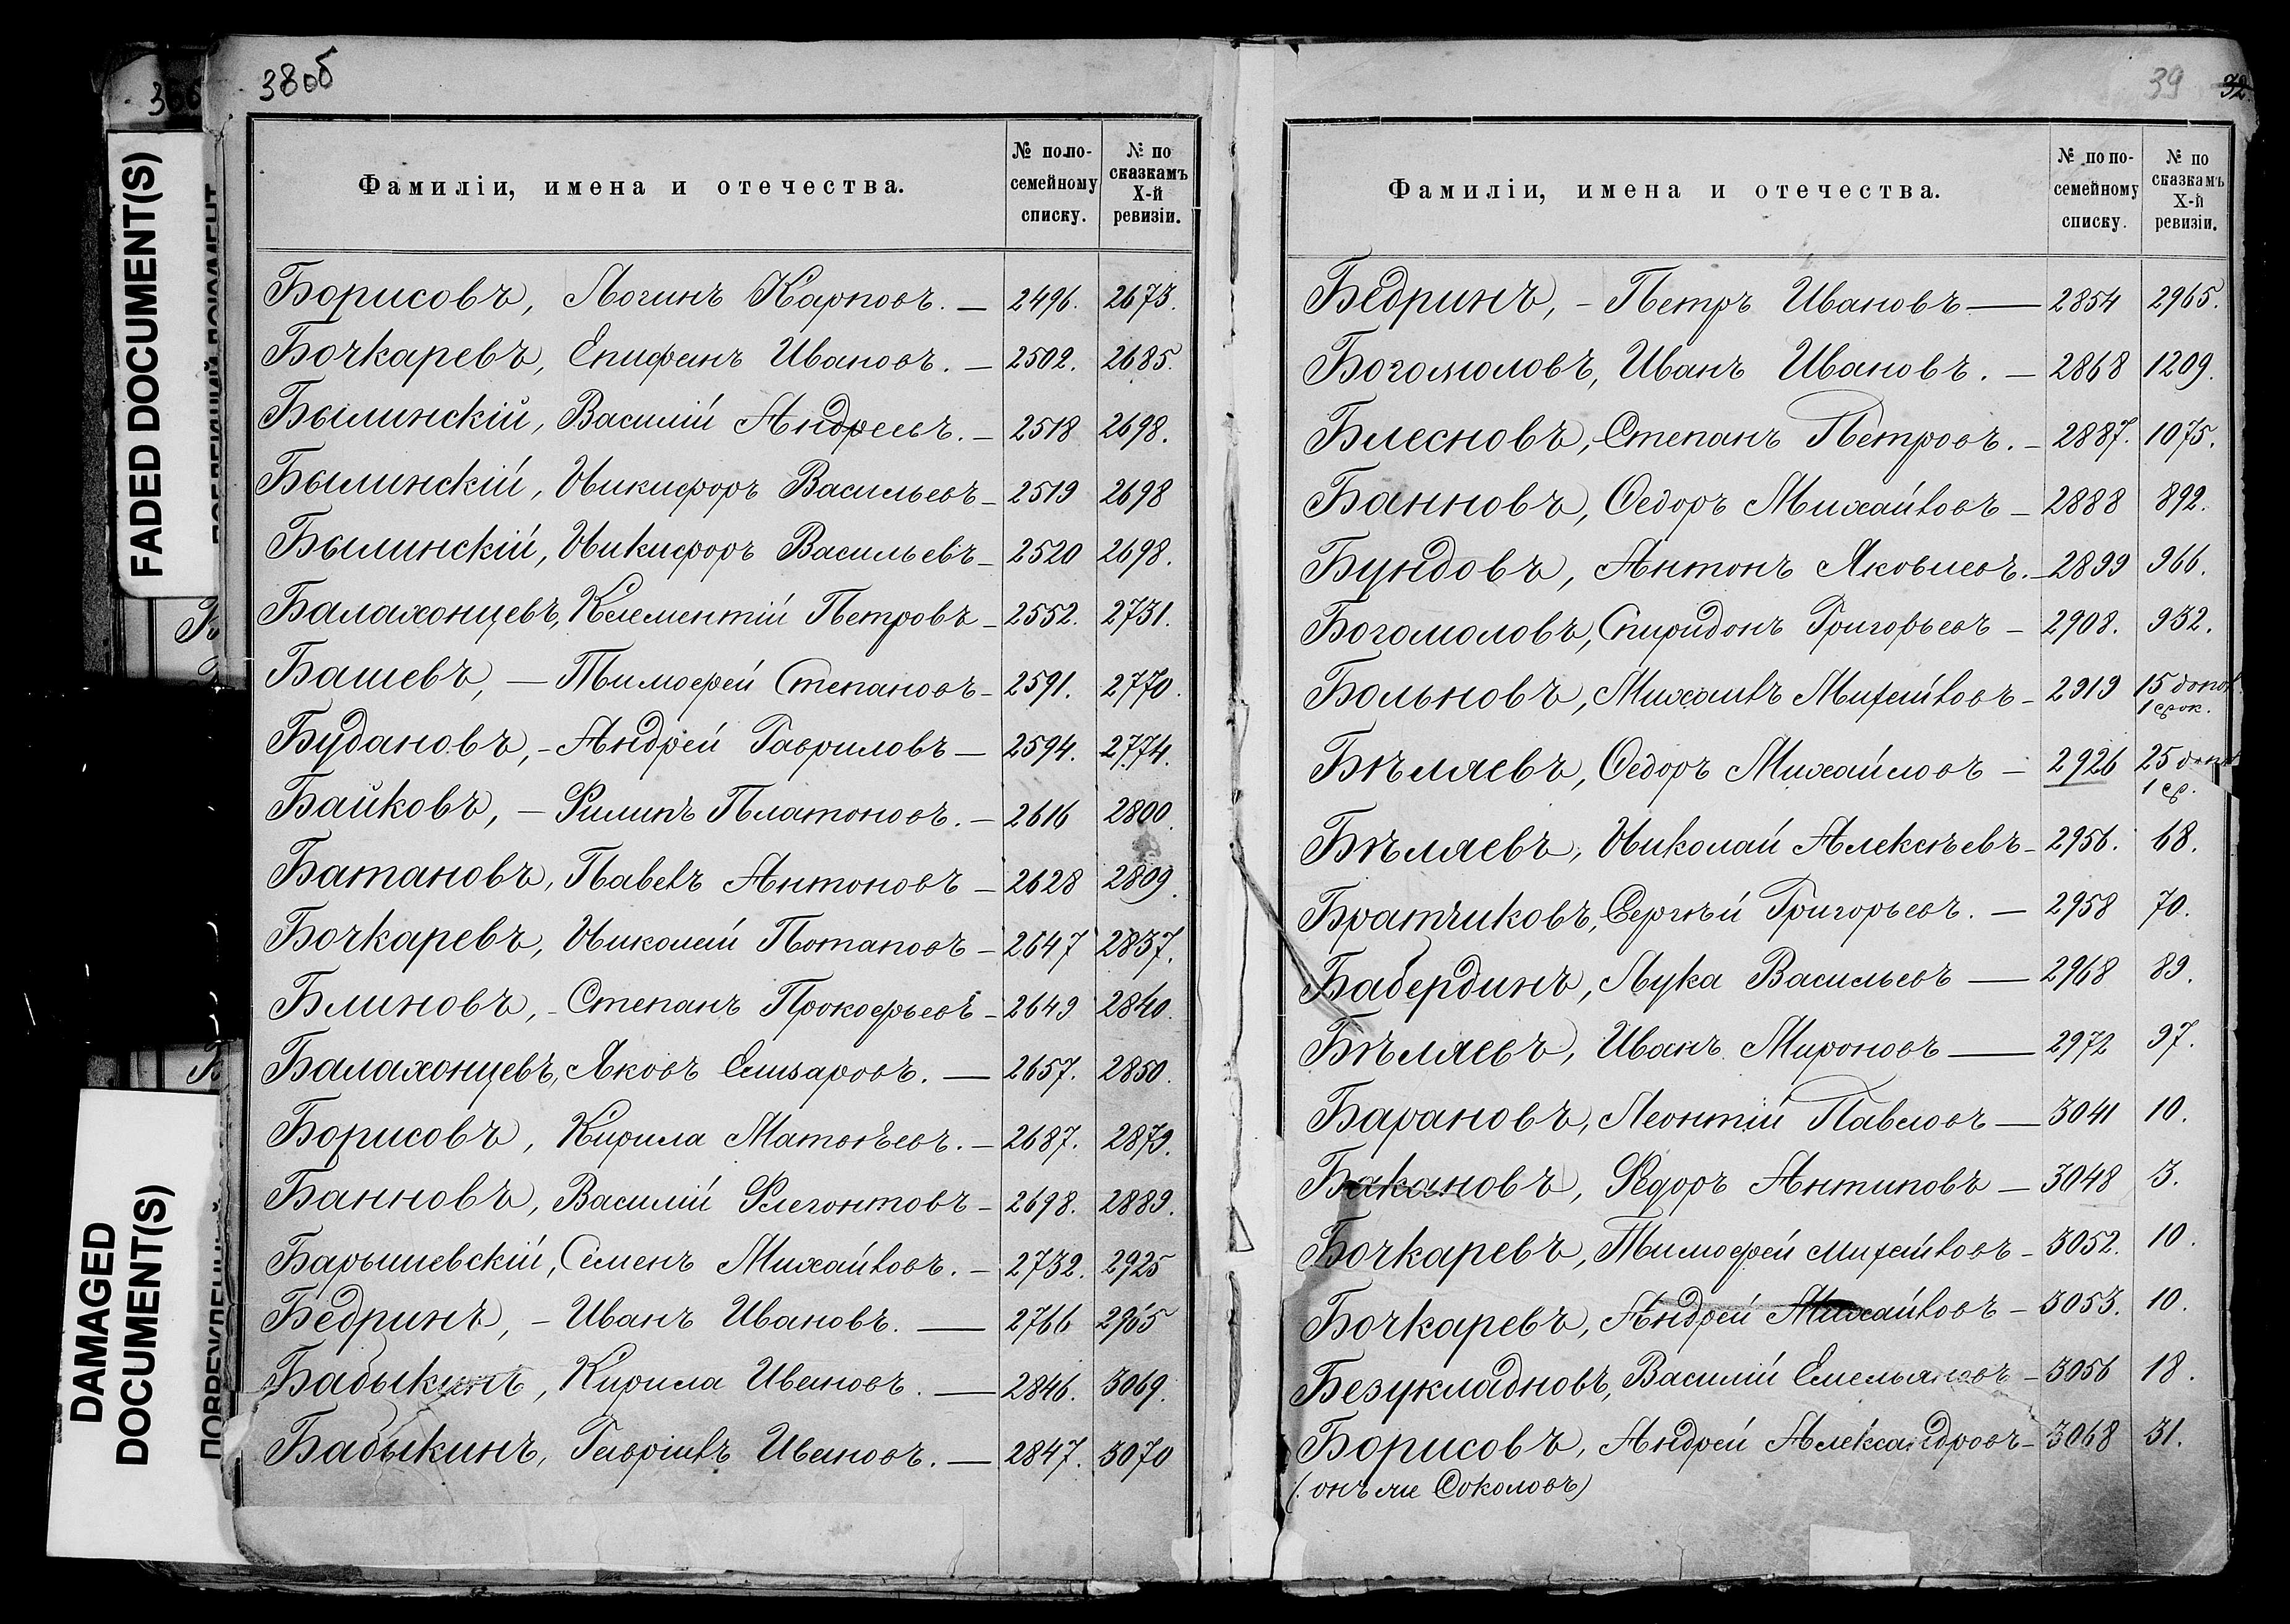 38об
39 32.
FADED DOCUMENT(S)
DAMAGED
DOCUMENT(S)
Фамиліи, имена и отечества.
№ по по-
семейному
списку.
№ по
сказкамъ
X-й
ревизіи.
Борисовъ, Логинъ Карповъ. — 2496. 2673.
Бочкаревъ, Епифанъ Ивановъ. — 2502. 2685.
Былинскій, Василій Андреевъ. — 2518 2698.
Былинскій, Никифоръ Васильевъ — 2519 2698
Былинскій, Никифоръ Васильевъ — 2520 2698.
Балахонцевъ, Клементій Петровъ — 2552. 2731.
Башевъ, — Тимофей Степановъ — 2591. 2770.
Будановъ, — Андрей Гавриловъ — 2594. 2774.
Байковъ, — Филипъ Платоновъ. — 2616 2800.
Батановъ, Павелъ Антоновъ — 2628 2809.
Бочкаревъ, Николай Потаповъ — 2647 2837.
Блиновъ, — Степанъ Прокофьевъ — 2649 2840.
Балахонцевъ, Яковъ Елизаровъ. — 2657. 2850.
Борисовъ, Кирила Матвѣевъ. — 2687. 2879.
Банновъ, Василій Флегонтовъ — 2698. 2889.
Барышевскій, Семенъ Михайловъ. — 2732. 2925
Бедринъ, — Иванъ Ивановъ. — 2766 2965
Бабыкинъ, Кирила Ивановъ. — 2846. 3069.
Бабыкинъ, Гаврiилъ Ивановъ. — 2847. 3070
Фамиліи, имена и отечества.
№ по по-
семейному
списку.
№ по
сказкамъ
X-й
ревизіи.
Бедринъ, — Петръ Ивановъ — 2854 2965.
Богомоловъ, Иванъ Ивановъ. — 2868 1209.
Блесновъ, Степанъ Петровъ. — 2887. 1075.
Банновъ, Ѳедоръ Михайловъ — 2888 892.
Бундовъ, Антонъ Яковлевъ. — 2899 966.
Богомоловъ, Спиридонъ Григорьевъ — 2908. 932.
Больновъ, Михаилъ Михайловъ — 2919 15 допол.
1 срок.
Бѣляевъ, Ѳедоръ Михайловъ — 2926 25 допол
1 ср.
Бѣляевъ, Николай Алексѣевъ — 2956. 68.
Братчиковъ, Сергѣй Григорьевъ. — 2958 70.
Бабердинъ, Лука Васильевъ — 2968 89.
Бѣляевъ, Иванъ Мироновъ — 2972 97.
Барановъ, Леонтій Павловъ — 3041 10.
Бакановъ, Федоръ Антиповъ — 3048 3.
Бочкаревъ, Тимофей Михайловъ — 3052. 10.
Бочкаревъ, Андрей Михайловъ — 3053. 10.
Безукладновъ, Василій Емельяновъ — 3056 18.
Борисовъ, Андрей Александровъ — 3068 31.
(онъ же Соколовъ)